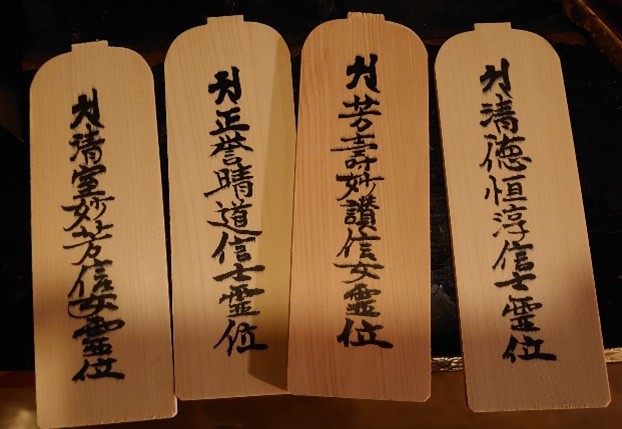 𑖀清徳恒淳信士霊位
𑖀芳壽妙讃信女霊位
𑖀正誉晴道信士霊位
𑖀清室妙芳信女霊位